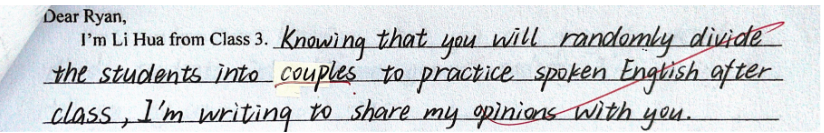 Dear Ryan,
I'm Li Hua from Class 3. Knowing that you will randomly divide
the students into couples to practice spoken English after
class, I'm writing to share my opinions with you.